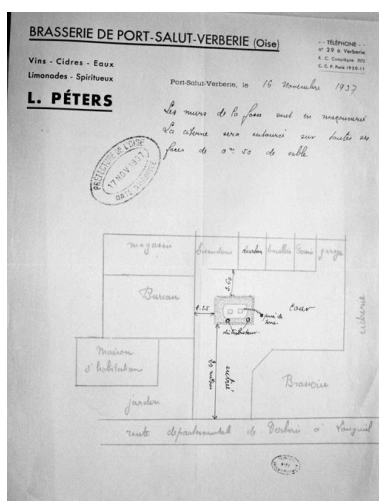 BRASSERIE DE PORT-SALUT-VERBERIE (Oise)
-- TÉLÉPHONE --
n° 29 à Verberie
R. C. Compiègne
C. C. P. Paris
Vins - Cidres - Eaux
Limonades - Spiritueux
L. PÉTERS
Port-Salut-Verberie, le 16 Novembre 1937
Les murs de la fosse sont en maçonnerie
La citerne sera entourée sur toutes ses
faces de 0m 50 de sable.
PRÉFECTURE DE L'OISE
17 NOV 1937
magasin
garage
Bureau
cour
distributeur
Maison
d'habitation
entrée
Brasserie
jardin
route départementale de Verberie à Longueil